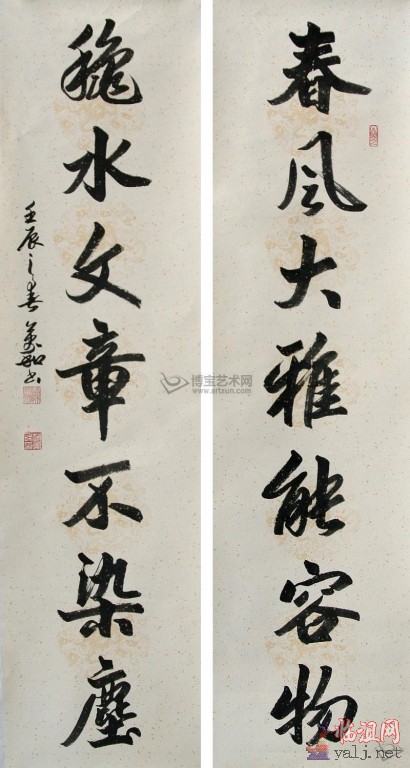 春风大雅能容物
穐水文章不染塵
壬辰之春
博宝艺术网
www.artxun.com
临沮网
yalj.net